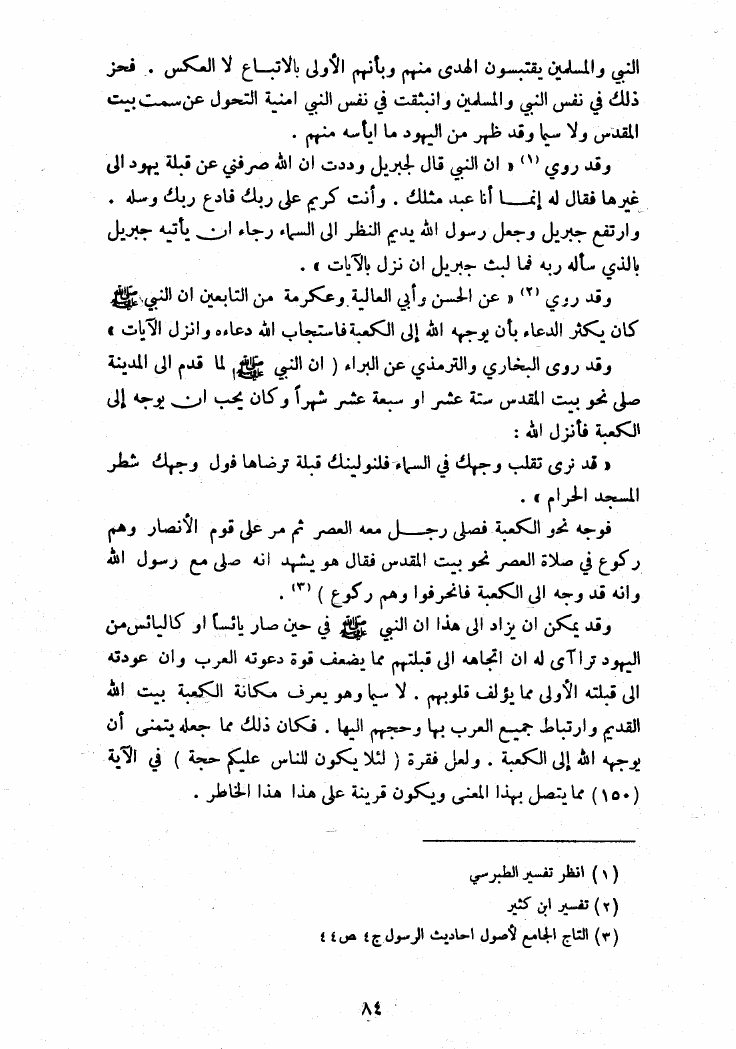 النبي والمسلمين يقتبسون الهدى منهم وبأنهم الأولى بالاتبـاع لا العكس . فحز
ذلك في نفس النبي والمسلمين وانبثقت في نفس النبي امنية التحول عن سمت بيت
المقدس ولا سيما وقد ظهر من اليهود ما ايأسه منهم .
وقد روي (١) « ان النبي قال لجبريل وددت ان الله صرفني عن قبلة يهود الى
غيرها فقال له إنمـا أنا عبد مثلك . وأنت كريم على ربك فادع ربك وسله .
وارتفع جبريل وجعل رسول الله يديم النظر الى السماء رجاء ان يأتيه جبريل
بالذي سأله ربه فما لبث جبريل ان نزل بالآيات » .
وقد روي (٢) « عن الحسن وأبي العالية وعكرمة من التابعين ان النبي ﷺ
كان يكثر الدعاء بأن يوجهه الله إلى الكعبة فاستجاب الله دعاءه وانزل الآيات »
وقد روى البخاري والترمذي عن البراء ( ان النبي ﷺ لما قدم الى المدينة
صلى نحو بيت المقدس ستة عشر او سبعة عشر شهراً وكان يحب ان يوجه إلى
الكعبة فأنزل الله :
« قد نرى تقلب وجهك في السماء فلنولينك قبلة ترضاها فول وجهك شطر
المسجد الحرام » .
فوجه نحو الكعبة فصلى رجـل معه العصر ثم مر على قوم الأنصار وهم
ركوع في صلاة العصر نحو بيت المقدس فقال هو يشهد انه صلى مع رسول الله
وانه قد وجه الى الكعبة فانحرفوا وهم ركوع ) (٣) .
وقد يمكن ان يزاد الى هذا ان النبي ﷺ في حين صار يائساً او كاليائس من
اليهود تراآى له ان اتجاهه الى قبلتهم مما يضعف قوة دعوته العرب وان عودته
الى قبلته الأولى مما يؤلف قلوبهم . لا سيما وهو يعرف مكانة الكعبة بيت الله
القديم وارتباط جميع العرب بها وحجهم اليها . فكان ذلك مما جعله يتمنى أن
يوجهه الله إلى الكعبة . ولعل فقرة ( لئلا يكون للناس عليكم حجة ) في الآية
(١٥٠) مما يتصل بهذا المعنى ويكون قرينة على هذا هذا الخاطر .
(١) انظر تفسير الطبرسي
(٢) تفسير ابن كثير
(٣) التاج الجامع لأصول احاديث الرسول ج٤ ص٤٤
٨٤